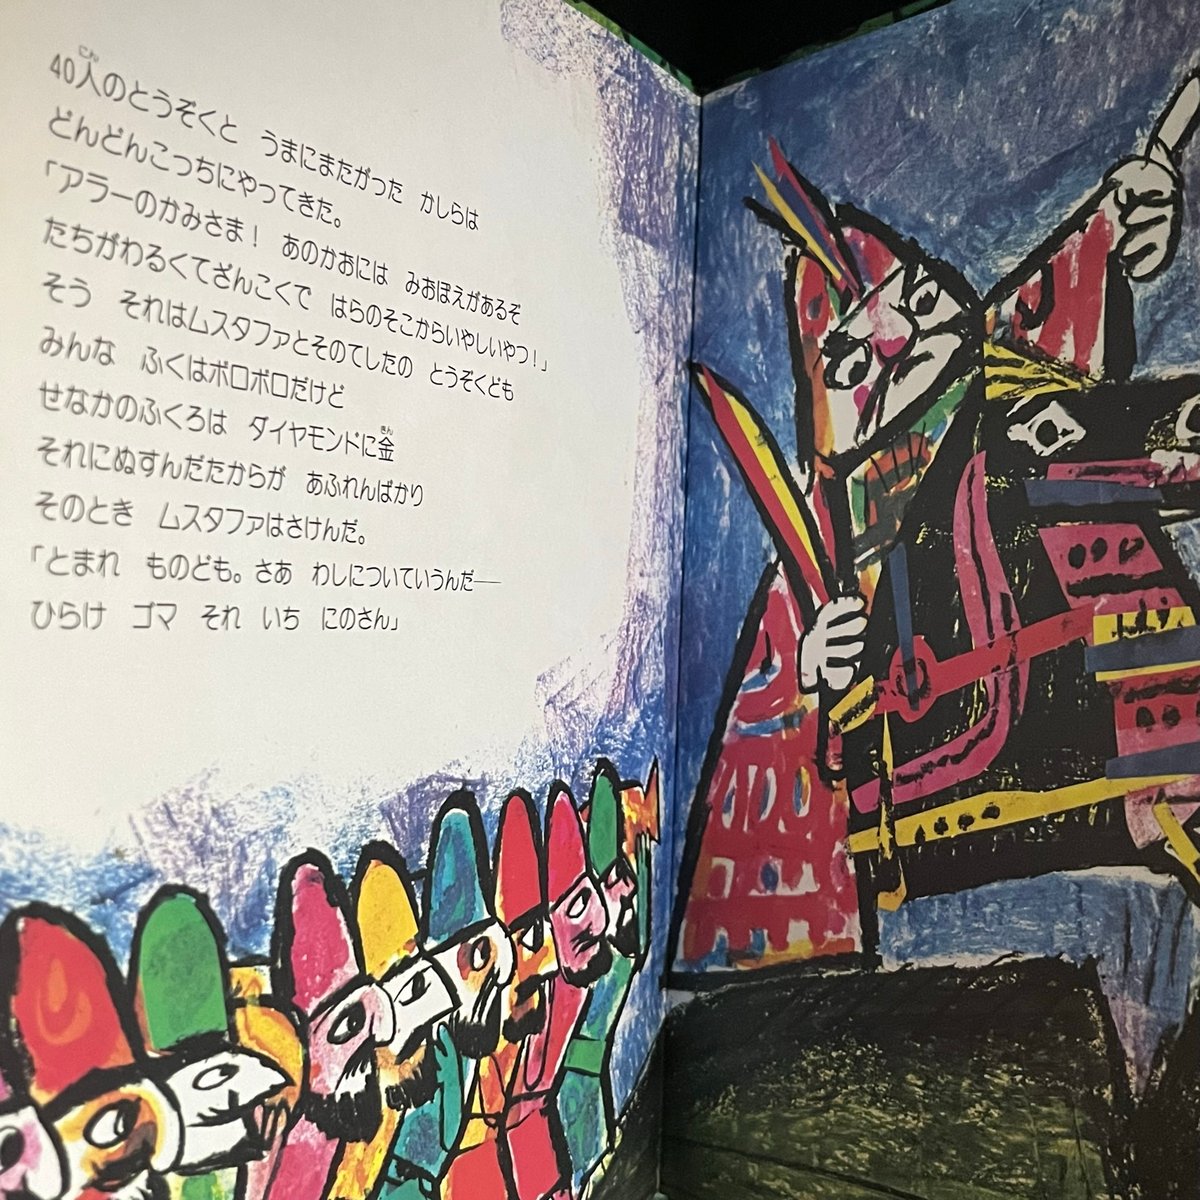 40人のとうぞくと　うまにまたがった　かしらは
どんどんこっちにやってきた。
「アラーのかみさま！　あのかおには　みおぼえがあるぞ
たちがわるくてざんこくで　はらのそこからいやしいやつ！」
そう　それはムスタファとそのてしたの　とうぞくども
みんな　ふくはボロボロだけど
せなかのふくろは　ダイヤモンドに金
それにぬすんだたからが　あふれんばかり
そのとき　ムスタファはさけんだ。
「とまれ　ものども。さあ　わしについていうんだ──
ひらけ　ゴマ　それ　いち　にのさん」